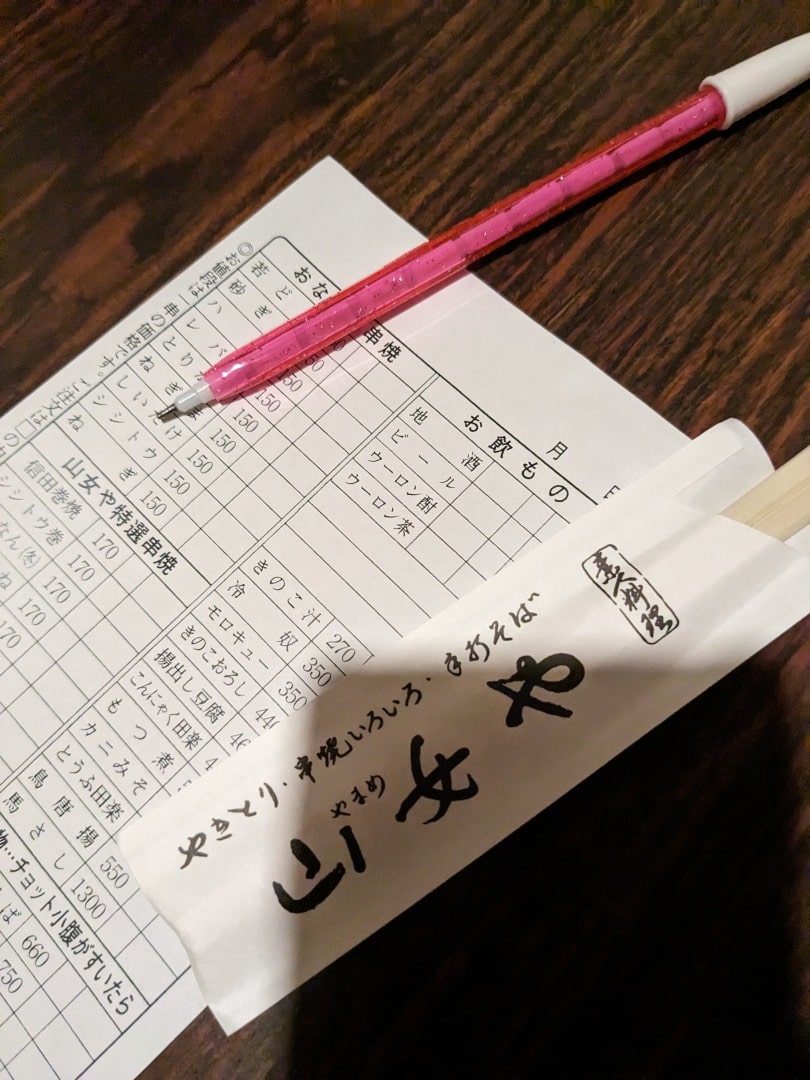 月 日
お飲もの
地酒
ビール
ウーロン酎
ウーロン茶
串焼
若ど
砂ぎ
ハ
レバ 150
とり 150
ねぎま 150
しいたけ 150
シシトウ 150
ねぎ 150
◎お値段は
串の価格です。
ご注文は
山女や特選串焼
信田巻焼 170
シシトウ巻 170
なん(冬) 170
ね 170
170
きのこ汁 270
冷奴 350
モロキュー 350
きのこおろし
揚出し豆腐
こんにゃく田楽
もつ煮
カニみそ
とうふ田楽
鳥唐揚 550
馬さし 1300
物…チョット小腹がすいたら
ば 660
750
素人料理
やきとり.串焼いろいろ.手打そば
やまめ
山女や